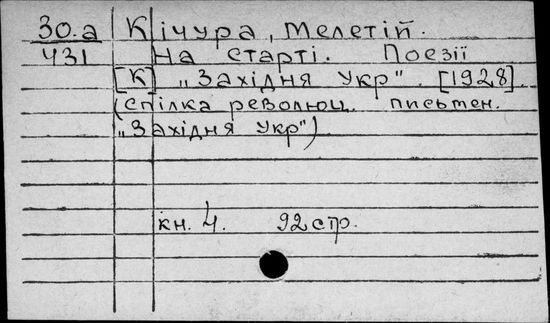 30.а Кічура, Мелетій.
431 На старті. Поезії
[К] „Західня Укр". [1928]
(спілка революц. письмен.
„Західня Укр")
кн. 4. 92 стр.